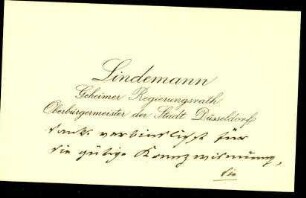 Lindemann
Geheimer Regierungsrath
Oberbürgermeister der Stadt Düsseldorf
dankt verbindlichst für
die gütige Kranzwidmung,
die